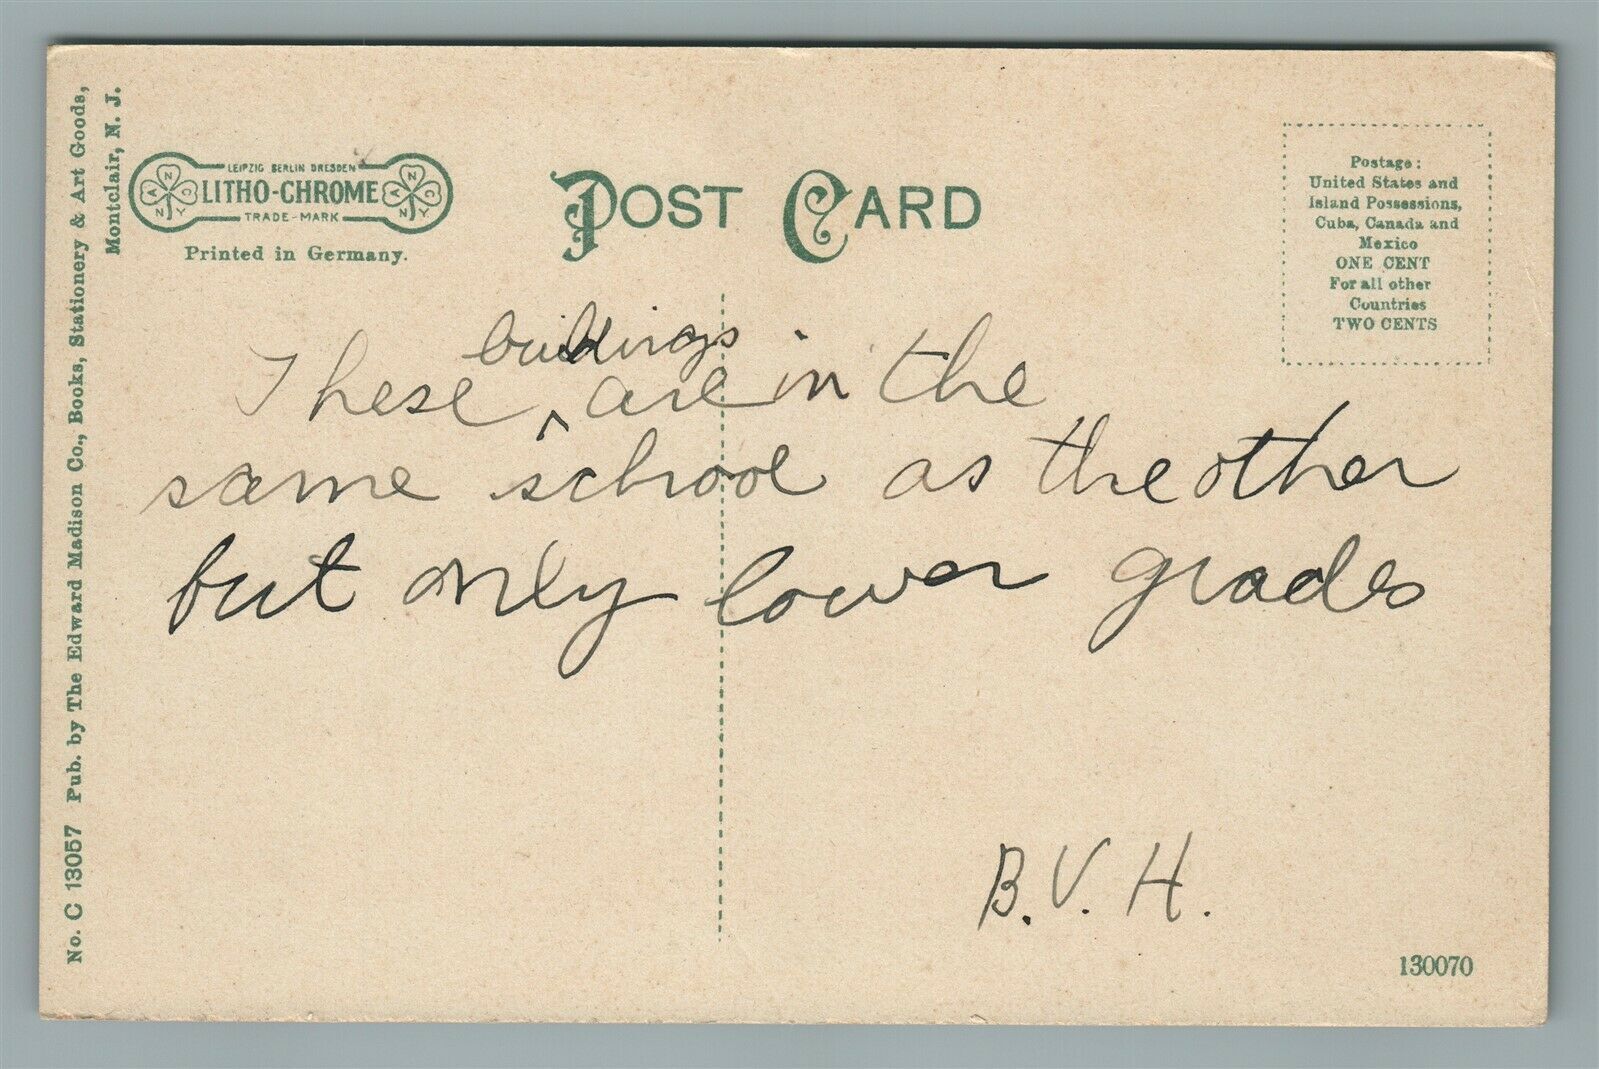 No. C 13057 Pub. by The Edward Madison Co., Books, Stationery & Art Goods,
Montclair, N. J.
LEIPZIG BERLIN DRESDEN
LITHO-CHROME
TRADE-MARK
ANNCY
ANNCY
Printed in Germany.
POST CARD
Postage:
United States and
Island Possessions,
Cuba, Canada and
Mexico
ONE CENT
For all other
Countries
TWO CENTS
buildings
These ^ are in the
same school as the other
but only lower grades
B.V.H.
130070